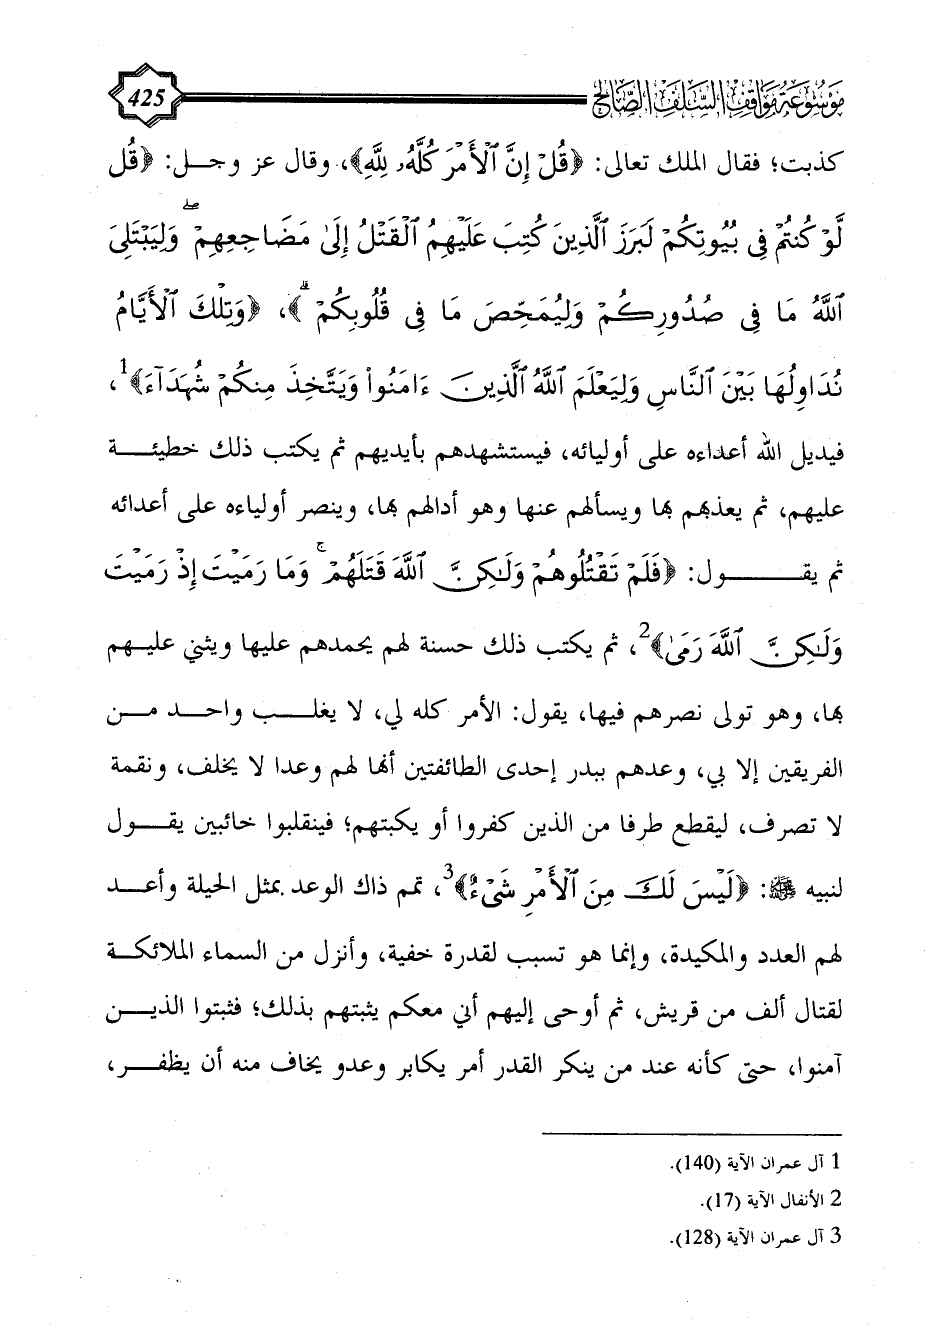 موسوعة مواقف السلف الصالح
425
كذبت؛ فقال الملك تعالى: ﴿قُلْ إِنَّ ٱلْأَمْرَ كُلَّهُۥ لِلَّهِ﴾، وقال عز وجل: ﴿قُل
لَّوْ كُنتُمْ فِى بُيُوتِكُمْ لَبَرَزَ ٱلَّذِينَ كُتِبَ عَلَيْهِمُ ٱلْقَتْلُ إِلَىٰ مَضَاجِعِهِمْ ۖ وَلِيَبْتَلِىَ
ٱللَّهُ مَا فِى صُدُورِكُمْ وَلِيُمَحِّصَ مَا فِى قُلُوبِكُمْ ۗ﴾، ﴿وَتِلْكَ ٱلْأَيَّامُ
نُدَاوِلُهَا بَيْنَ ٱلنَّاسِ وَلِيَعْلَمَ ٱللَّهُ ٱلَّذِينَ ءَامَنُوا۟ وَيَتَّخِذَ مِنكُمْ شُهَدَآءَ﴾1،
فيديل الله أعداءه على أوليائه، فيستشهدهم بأيديهم ثم يكتب ذلك خطيئة
عليهم، ثم يعذبهم بها ويسألهم عنها وهو أدالهم بها، وينصر أولياءه على أعدائه
ثم يقول: ﴿فَلَمْ تَقْتُلُوهُمْ وَلَٰكِنَّ ٱللَّهَ قَتَلَهُمْ ۚ وَمَا رَمَيْتَ إِذْ رَمَيْتَ
وَلَٰكِنَّ ٱللَّهَ رَمَىٰ﴾2، ثم يكتب ذلك حسنة لهم يحمدهم عليها ويثني عليهم
بها، وهو تولى نصرهم فيها، يقول: الأمر كله لي، لا يغلب واحد من
الفريقين إلا بي، وعدهم ببدر إحدى الطائفتين أنها لهم وعدا لا يخلف، ونقمة
لا تصرف، ليقطع طرفا من الذين كفروا أو يكبتهم؛ فينقلبوا خائبين يقول
لنبيه ﷺ: ﴿لَيْسَ لَكَ مِنَ ٱلْأَمْرِ شَىْءٌ﴾3، تمم ذاك الوعد بمثل الحيلة وأعد
لهم العدد والمكيدة، وإنما هو تسبب لقدرة خفية، وأنزل من السماء الملائكة
لقتال ألف من قريش، ثم أوحى إليهم أني معكم يثبتهم بذلك؛ فثبتوا الذين
آمنوا، حتى كأنه عند من ينكر القدر أمر يكابر وعدو يخاف منه أن يظفر،
1 آل عمران الآية (140).
2 الأنفال الآية (17).
3 آل عمران الآية (128).